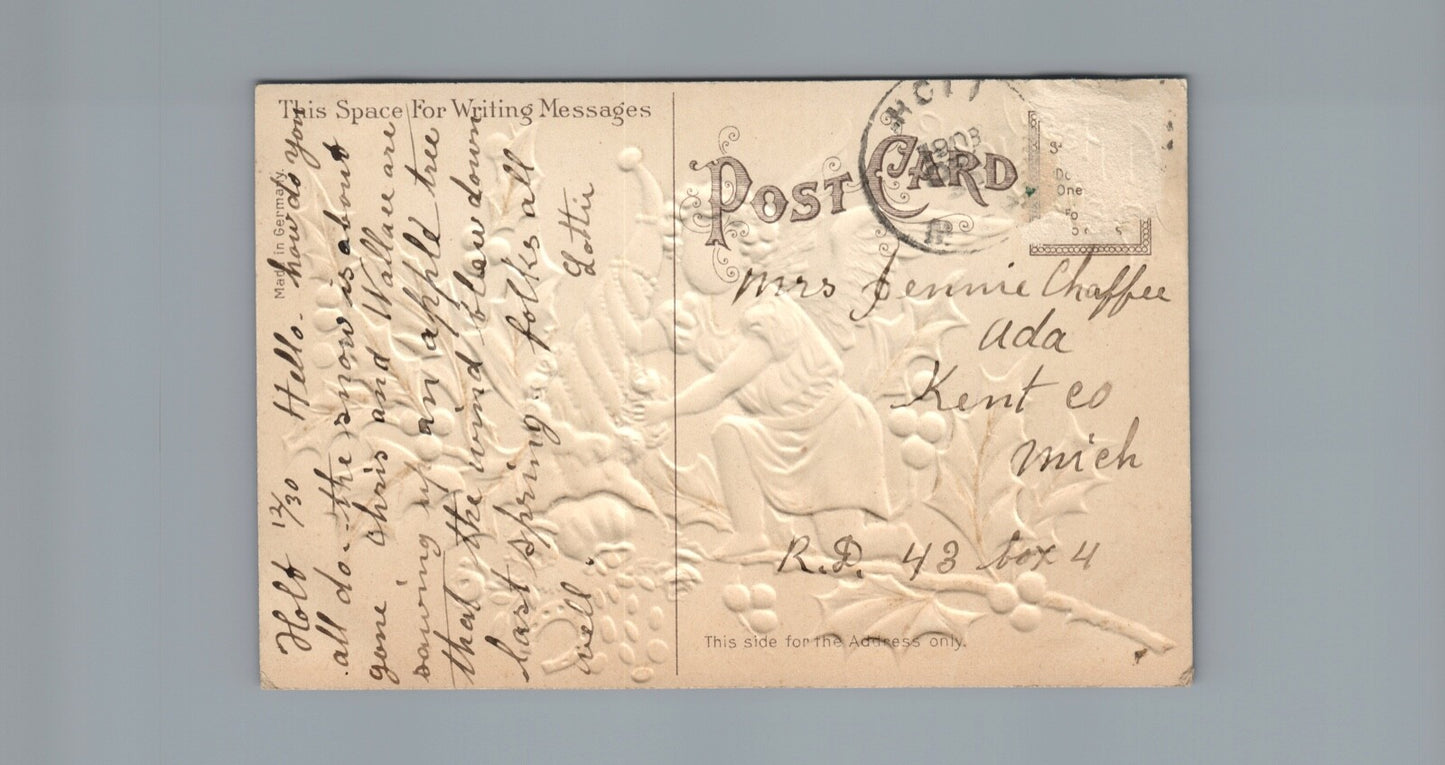 This Space For Writing Messages
Made in Germany.
Holt 12/30 Hello. how do you
all do. the snow is about
gone Chris and Wallace are
sawing up an apple tree
that the wind blew down
last spring folks all
well.
Lottie
POST CARD
HOLT
1908
One
Mrs Jennie Chaffee
Ada
Kent Co
Mich
R.D. 43 box 4
This side for the Address only.